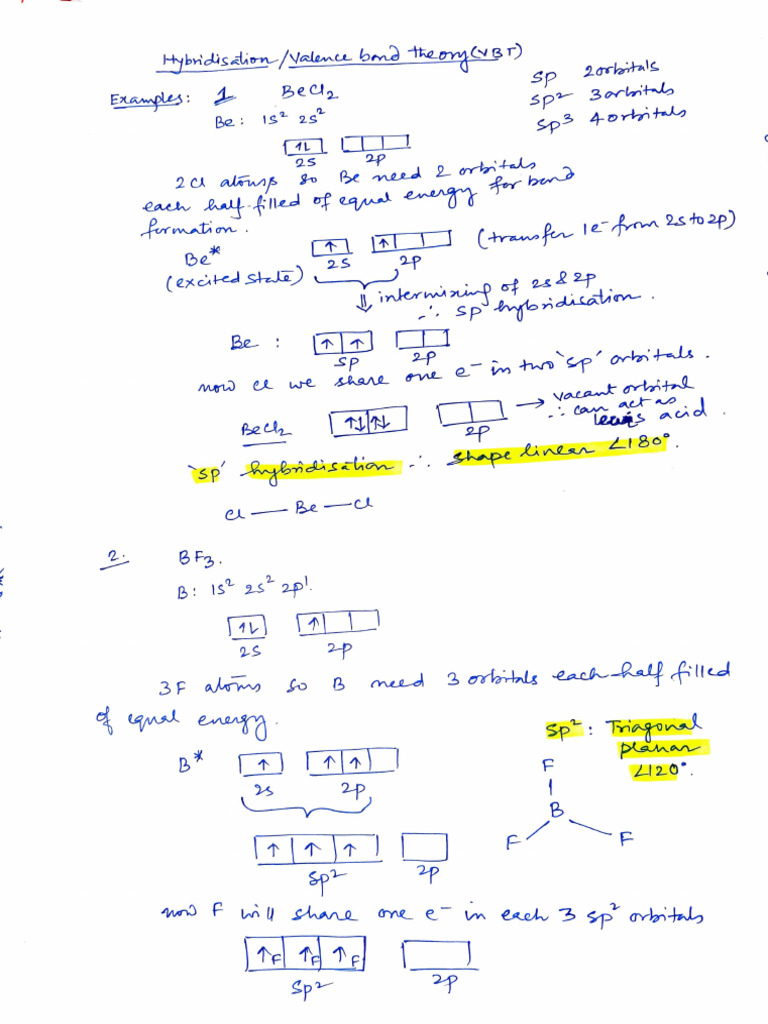 Hybridisation/Valence bond theory(VBT)
Examples: 1 BeCl2
sp 2orbitals
sp2 3orbitals
sp3 4orbitals
Be: 1s² 2s²
↑↓
2s 2p
2Cl atoms so Be need 2 orbitals
each half-filled of equal energy for bond
formation.
Be* ↑ ↑ (transfer 1e- from 2s to 2p)
2s 2p
(excited state)
⇓ intermixing of 2s & 2p
∴ sp hybridisation.
Be : ↑ ↑
sp 2p
now Cl we share one e- in two 'sp' orbitals.
BeCl2 ↑↓ ↑↓ → vacant orbital
2p ∴ can act as
lewis acid.
'sp' hybridisation ∴ shape linear ∠180°.
Cl — Be — Cl
2. BF3.
B: 1s² 2s² 2p¹
↑↓ ↑
2s 2p
3F atoms so B need 3 orbitals each half filled
of equal energy.
sp²: Triagonal
planar
∠120°.
B* ↑ ↑ ↑
2s 2p
F
B
F F
↑ ↑ ↑
sp2 2p
now F will share one e- in each 3 sp² orbitals
↑F ↑F ↑F
sp2 2p